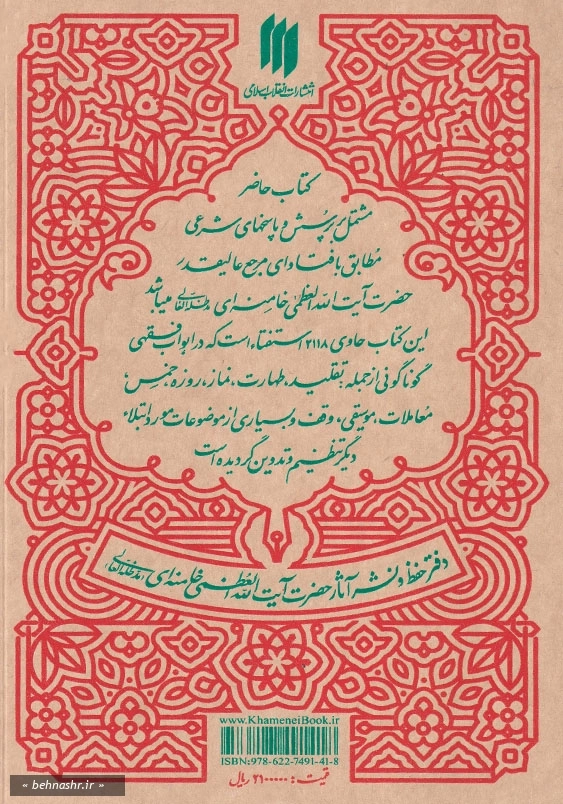 انتشارات انقلاب اسلامی
کتاب حاضر
مشتمل بر پرسش و پاسخهای شرعی
مطابق با فتاوای مرجع عالیقدر
حضرت آیت الله العظمی خامنه ای مدظله العالی میباشد
این کتاب حاوی ۲۱۱۸ استفتاء است که در ابواب فقهی
گوناگونی از جمله: تقلید، طهارت، نماز، روزه، خمس،
معاملات، موسیقی، وقف و بسیاری از موضوعات مورد ابتلاء
دیگر تنظیم و تدوین گردیده است
دفتر حفظ و نشر آثار حضرت آیت الله العظمی خامنه ای مدظله العالی
www.KhameneiBook.ir
ISBN: 978-622-7491-41-8
قیمت: ۲۱۰۰۰۰۰ ریال
« behnashr.ir »